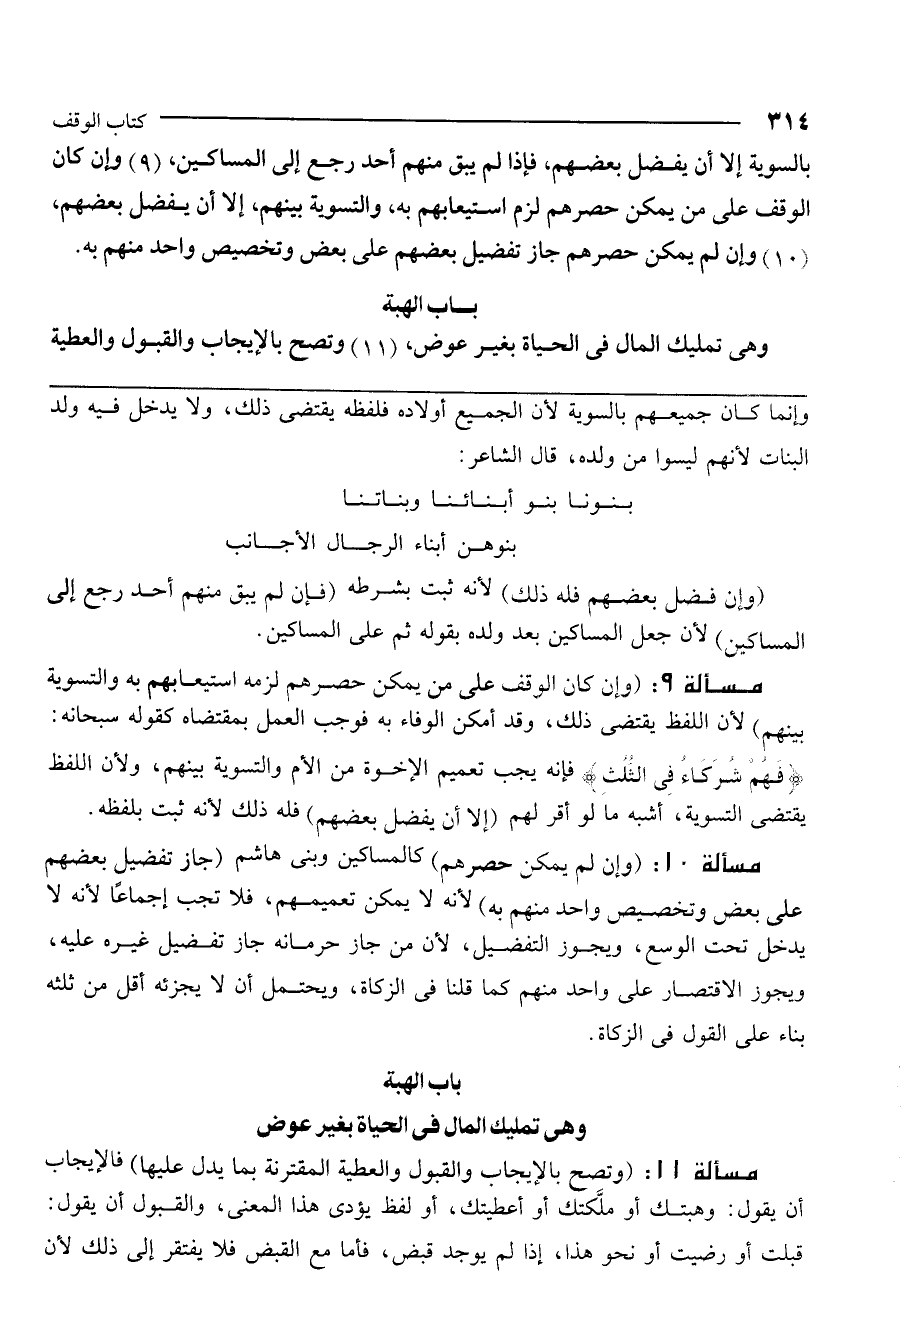 ٣١٤ كتاب الوقف
بالسوية إلا أن يفضل بعضهم، فإذا لم يبق منهم أحد رجع إلى المساكين، (٩) وإن كان
الوقف على من يمكن حصرهم لزم استيعابهم به، والتسوية بينهم، إلا أن يفضل بعضهم،
(١٠) وإن لم يمكن حصرهم جاز تفضيل بعضهم على بعض وتخصيص واحد منهم به.
باب الهبة
وهى تمليك المال فى الحياة بغير عوض، (١١) وتصح بالإيجاب والقبول والعطية
وإنما كان جميعهم بالسوية لأن الجميع أولاده فلفظه يقتضى ذلك، ولا يدخل فيه ولد
البنات لأنهم ليسوا من ولده، قال الشاعر:
بنونا بنو أبنائنا وبناتنا
بنوهن أبناء الرجال الأجانب
(وإن فضل بعضهم فله ذلك) لأنه ثبت بشرطه (فإن لم يبق منهم أحد رجع إلى
المساكين) لأن جعل المساكين بعد ولده بقوله ثم على المساكين.
مسألة ٩: (وإن كان الوقف على من يمكن حصرهم لزمه استيعابهم به والتسوية
بينهم) لأن اللفظ يقتضى ذلك، وقد أمكن الوفاء به فوجب العمل بمقتضاه كقوله سبحانه:
﴿فَهُمْ شُرَكَاءُ فِى الثُّلُث﴾ فإنه يجب تعميم الإخوة من الأم والتسوية بينهم، ولأن اللفظ
يقتضى التسوية، أشبه ما لو أقر لهم (إلا أن يفضل بعضهم) فله ذلك لأنه ثبت بلفظه.
مسألة ١٠: (وإن لم يمكن حصرهم) كالمساكين وبنى هاشم (جاز تفضيل بعضهم
على بعض وتخصيص واحد منهم به) لأنه لا يمكن تعميمهم، فلا تجب إجماعًا لأنه لا
يدخل تحت الوسع، ويجوز التفضيل، لأن من جاز حرمانه جاز تفضيل غيره عليه،
ويجوز الاقتصار على واحد منهم كما قلنا فى الزكاة، ويحتمل أن لا يجزئه أقل من ثلثه
بناء على القول فى الزكاة.
باب الهبة
وهى تمليك المال فى الحياة بغير عوض
مسألة ١١: (وتصح بالإيجاب والقبول والعطية المقترنة بما يدل عليها) فالإيجاب
أن يقول: وهبتك أو ملَّكتك أو أعطيتك، أو لفظ يؤدى هذا المعنى، والقبول أن يقول:
قبلت أو رضيت أو نحو هذا، إذا لم يوجد قبض، فأما مع القبض فلا يفتقر إلى ذلك لأن